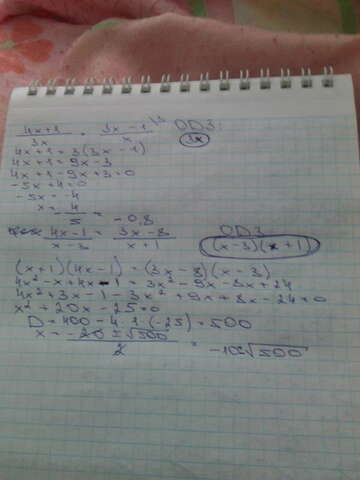 4x+1/3x = 3x-1/x \3 ОДЗ:
3x
4x+1=3(3x-1)
4x+1=9x-3
4x+1-9x+3=0
-5x+4=0
-5x=-4
x=4/5=-0,8
4x-1/x-3 = 3x-8/x+1 ОДЗ
(x-3)(x+1)
(x+1)(4x-1)=(3x-8)(x-3)
4x²-x+4x-1=3x²-9x-8x+24
4x²+3x-1-3x²+9x+8x-24=0
x²+20x-25=0
D=400-4·1·(-25)=500
x=-20±√500/2=-10±√500